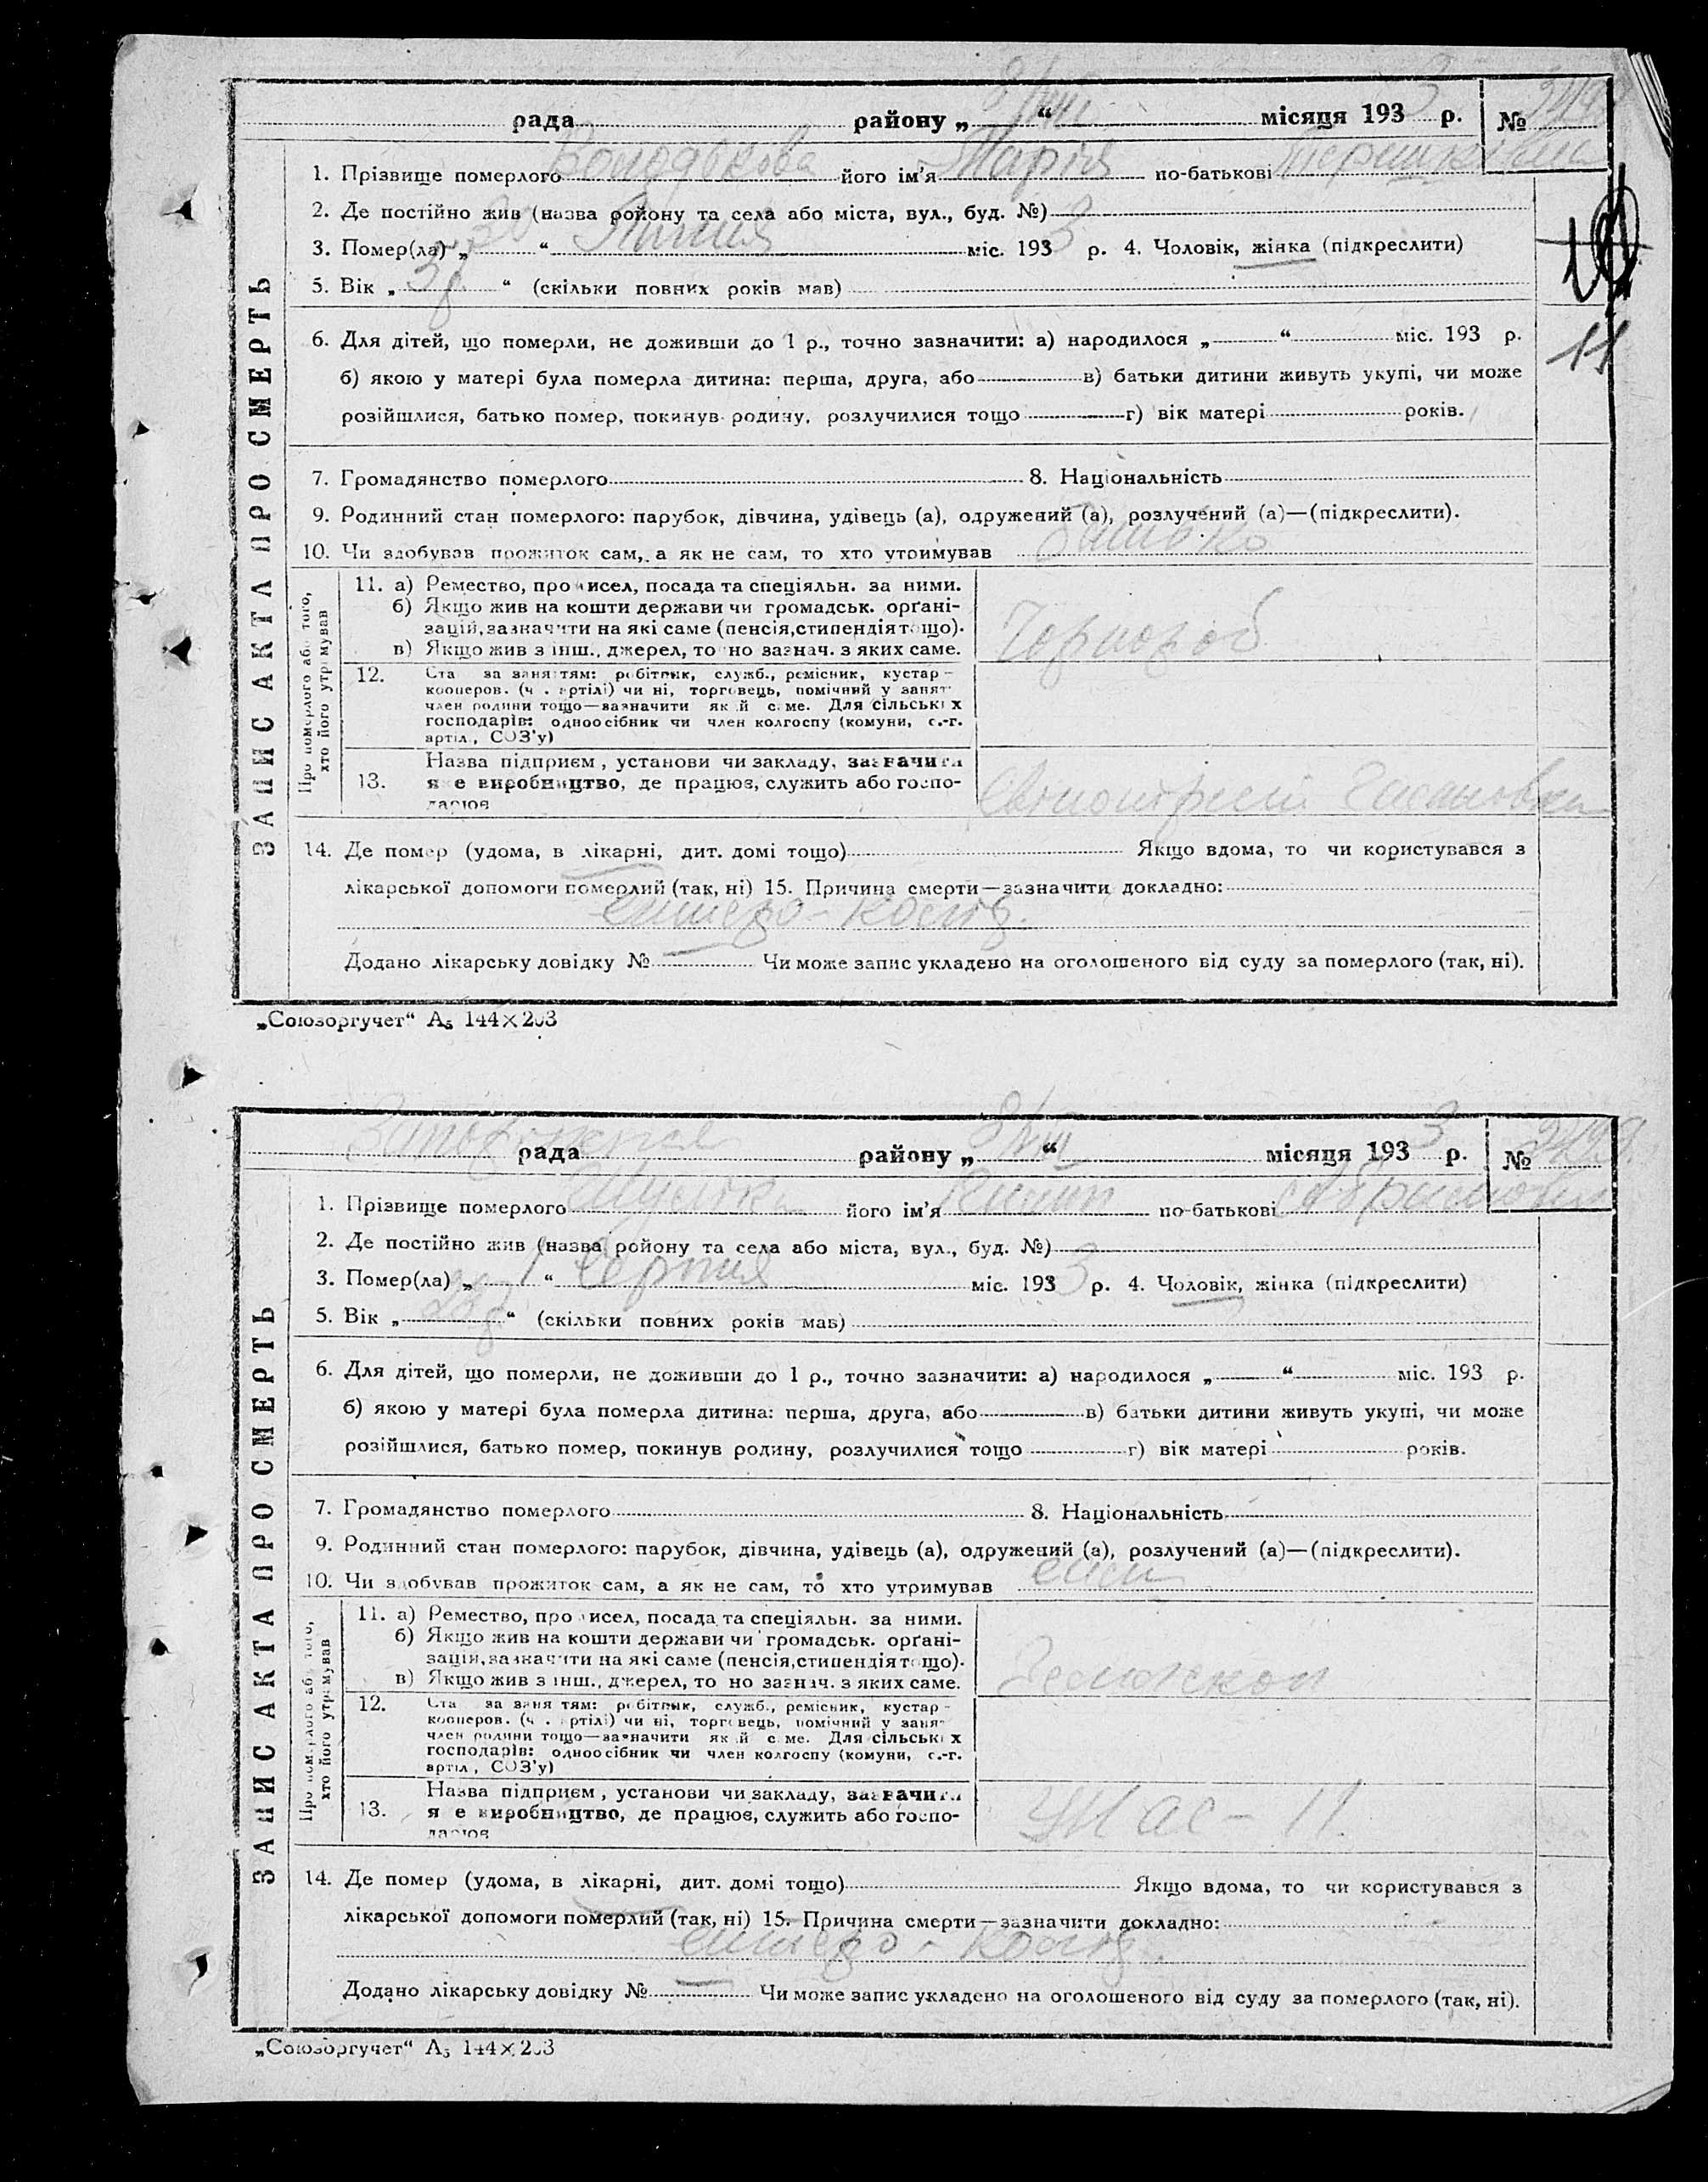 рада районому „ 8/VIII “ місяця 193 3 р. №
1. Прізвище померлого його ім'я Марія по-батькові
2. Де постійно жив (назва ройону та села або міста, вул., буд. №)
3. Помер(ла) „ 30 “ Липня міс. 193 3 р. 4. Чоловік, жінка (підкреслити)
5. Вік „ 3 р. “ (скільки повних років мав)
11
6. Для дітей, що померли, не доживши до 1 р., точно зазначити: а) народилося „ “ міс. 193 р.
б) якою у матері була померла дитина: перша, друга, або в) батьки дитини живуть укупі, чи може
розійшлися, батько помер, покинув родину, розлучилися тощо г) вік матері років.
7. Громадянство померлого 8. Національність
9. Родинний стан померлого: парубок, дівчина, удівець (а), одружений (а), розлучений (а)—(підкреслити).
10. Чи здобував прожиток сам, а як не сам, то хто утримував батько
ЗАПИС АКТА ПРО СМЕРТЬ
Про померлого або того,
хто його утримував
11. а) Ремество, промисел, посада та спеціяльн. за ними.
б) Якщо жив на кошти держави чи громадськ. орґані-
зацій, зазначити на які саме (пенсія, стипендія тощо).
в) Якщо жив з інш., джерел, то но зазнач. з яких саме.
Чорнороб
12. Ста за заняттям: робітник, служб., ремісник, кустар-
кооперов. (ч. артілі) чи ні, торговець, помічний у занят
член родини тощо—зазначити який саме. Для сільських
господарів: одноосібник чи член колгоспу (комуни, с.-г.
артіл., СОЗ'у)
13. Назва підприєм, установи чи закладу, зазначити
яке виробництво, де працює, служить або госпо-
дарює
14. Де помер (удома, в лікарні, дит. домі тощо) Якщо вдома, то чи користувався з
лікарської допомоги померлий (так, ні) 15. Причина смерти—зазначити докладно:
ентеро-коліт.
Додано лікарську довідку № Чи може запис укладено на оголошеного від суду за померлого (так, ні).
„Союзоргучет“ А5 144×203
Запоріжжя
рада району „ 8/VIII “ місяця 193 3 р. №
1. Прізвище померлого його ім'я по-батькові
2. Де постійно жив (назва ройону та села або міста, вул., буд. №)
3. Помер(ла) „ 1 “ Серпня міс. 193 3 р. 4. Чоловік, жінка (підкреслити)
5. Вік „ “ (скільки повних років мав)
6. Для дітей, що померли, не доживши до 1 р., точно зазначити: а) народилося „ “ міс. 193 р.
б) якою у матері була померла дитина: перша, друга, або в) батьки дитини живуть укупі, чи може
розійшлися, батько помер, покинув родину, розлучилися тощо г) вік матері років.
7. Громадянство померлого 8. Національність
9. Родинний стан померлого: парубок, дівчина, удівець (а), одружений (а), розлучений (а)—(підкреслити).
10. Чи здобував прожиток сам, а як не сам, то хто утримував сам
ЗАПИС АКТА ПРО СМЕРТЬ
Про померлого або того,
хто його утримував
11. а) Ремество, промисел, посада та спеціяльн. за ними.
б) Якщо жив на кошти держави чи громадськ. орґані-
зацій, зазначити на які саме (пенсія, стипендія тощо).
в) Якщо жив з інш., джерел, то но зазнач. з яких саме.
Землекоп
12. Ста за заняттям: робітник, служб., ремісник, кустар-
кооперов. (ч. артілі) чи ні, торговець, помічний у занят
член родини тощо—зазначити який саме. Для сільських
господарів: одноосібник чи член колгоспу (комуни, с.-г.
артіл., СОЗ'у)
13. Назва підприєм, установи чи закладу, зазначити
яке виробництво, де працює, служить або госпо-
дарює
14. Де помер (удома, в лікарні, дит. домі тощо) Якщо вдома, то чи користувався з
лікарської допомоги померлий (так, ні) 15. Причина смерти—зазначити докладно:
ентеро-коліт.
Додано лікарську довідку № Чи може запис укладено на оголошеного від суду за померлого (так, ні).
„Союзоргучет“ А5 144×203